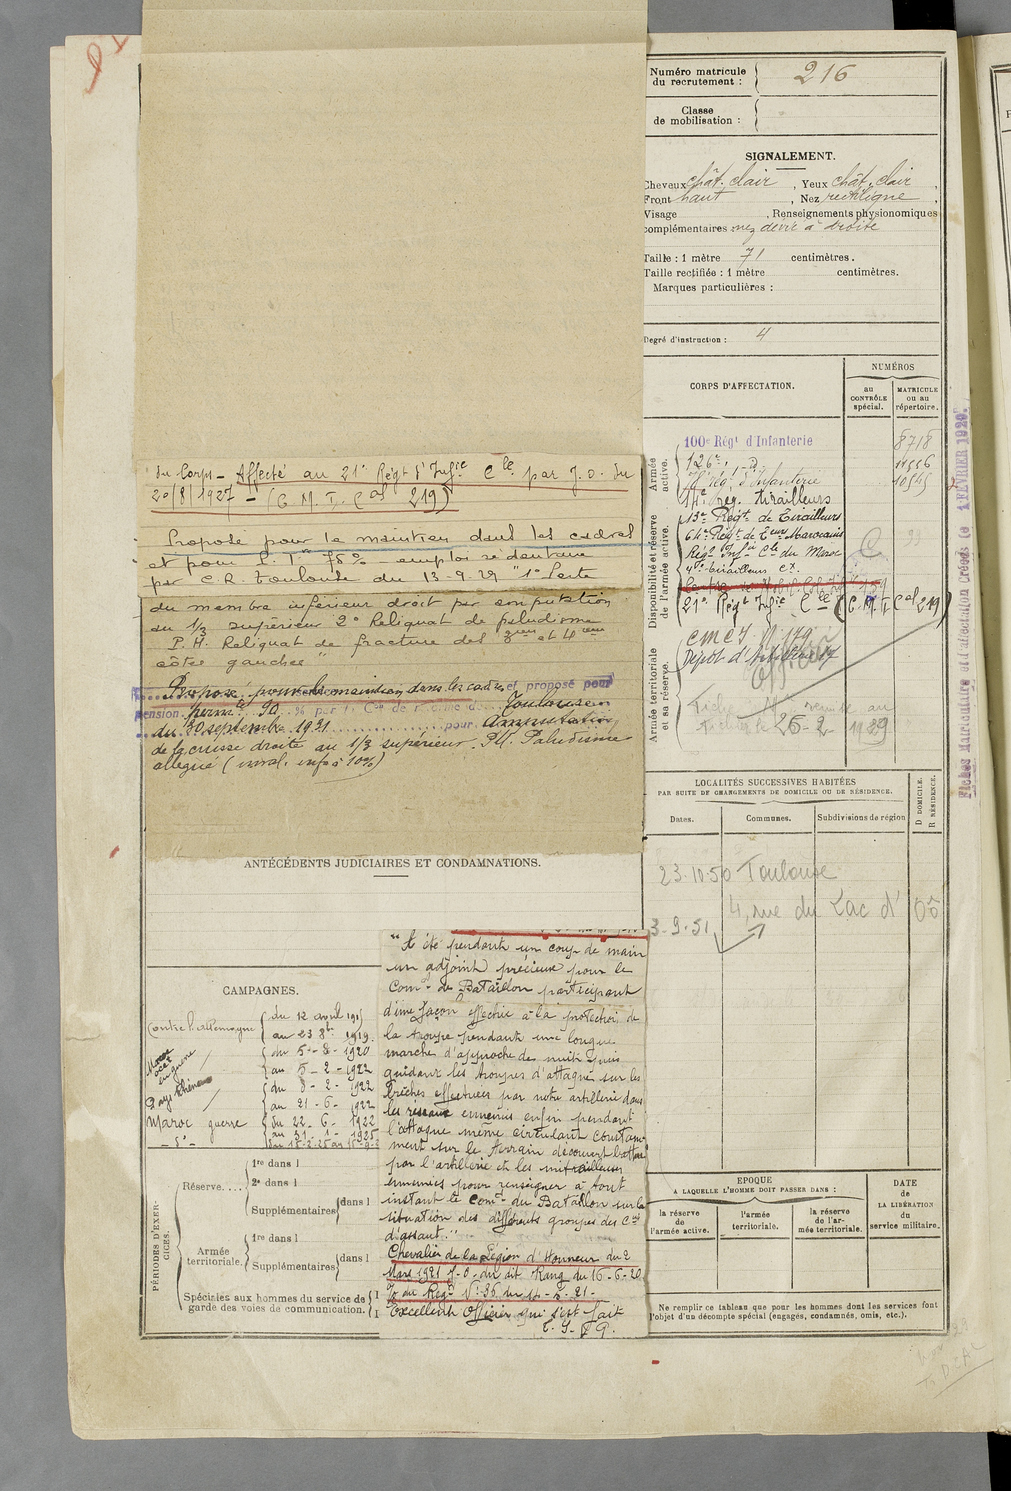 Numéro matricule
du recrutement : 216
Classe
de mobilisation :
SIGNALEMENT.
Cheveux chât. clair, Yeux chât. clair,
Front haut, Nez rectiligne,
Visage , Renseignements physionomiques
complémentaires : nez dévié à droite
Taille : 1 mètre 71 centimètres.
Taille rectifiée : 1 mètre centimètres.
Marques particulières :
Degré d'instruction : 4
CORPS D'AFFECTATION.
NUMÉROS
au
CONTRÔLE
spécial.
MATRICULE
ou au
répertoire.
Armée
active.
100e Régt d'Infanterie 8718
126e 11556
Régt d'Infanterie 10545
14e Rég. tirailleurs
Disponibilité et réserve
de l'armée active.
13e Régt de Tirailleurs
64e Régt de Teurs Marocains
Régt Infie Cle du Maroc
21e Régt Infie Cle (C.M.I. Cal 219)
Armée territoriale
et sa réserve.
CMCI N° 179
Dépôt d'Infanterie
Officier
26-2-1939
Fiches Matriculaire et d'affectation Créées le 1 FÉVRIER 1929.
LOCALITÉS SUCCESSIVES HABITÉES
PAR SUITE DE CHANGEMENTS DE DOMICILE OU DE RÉSIDENCE.
D DOMICILE.
R RÉSIDENCE.
Dates. Communes. Subdivisions de région
23.10.50 Toulouse
4, rue du Lac d'Oô
3-9-51
du Corps - Affecté au 21e Régt d'Infie Cle par J.O. du
20/8/1927 - (C.M.I. Cal 219)
Proposé pour le maintien dans les cadres
et pour P. Tre 75% emploi sédentaire
par C.R. Toulouse du 13-9-29 "1° Perte
du membre inférieur droit par amputation
au 1/3 supérieur 2° Reliquat de paludisme
P.H. Reliquat de fracture des 3eme et 4eme
côtes gauches"
Proposé pour le maintien dans les cadres et proposé pour
pension perm. 90 % par la Con de réforme de Toulouse
du 30 septembre 1931 pour Amputation
de la cuisse droite au 1/3 supérieur. P.H. Paludisme
allégué (inval. infre à 10%)
ANTÉCÉDENTS JUDICIAIRES ET CONDAMNATIONS.
"A été pendant un coup de main
un adjoint précieux pour le
Comt de Bataillon participant
d'une façon effective à la protection de
la troupe pendant une longue
marche d'approche de nuit puis
guidant les troupes d'attaque sur les
brèches effectuées par notre artillerie dans
les réseaux ennemis enfin pendant
l'attaque même circulant constam-
ment sur le terrain découvert battu
par l'artillerie et les mitrailleuses
ennemies pour renseigner à tout
instant le Comt du Bataillon sur la
situation des différents groupes des Cies
d'assaut."
Chevalier de la Légion d'Honneur du 2
Mars 1921 J.O. du dit Rang du 16-6-20
O/ du Régt N° 36 du 14-5-21-
Excellent Officier qui s'est fait
T.S.V.P.
CAMPAGNES.
Contre l'Allemagne du 12 avril 191
au 23 8bre 1919.
Maroc
occal
en guerre
du 5-8-1920
au 5-2-1922
Pays rhénans
du 8-2-1922
au 21-6-1922
Maroc guerre
du 22-6-1922
au 31-1-1925
PÉRIODES D'EXER-
CICES.
Réserve.... 1re dans l
2e dans l
Supplémentaires dans l
Armée
territoriale. 1re dans l
Supplémentaires dans l
Spéciales aux hommes du service de
garde des voies de communication.
EPOQUE
A LAQUELLE L'HOMME DOIT PASSER DANS :
la réserve
de
l'armée active.
l'armée
territoriale.
la réserve
de l'ar-
mée territoriale.
DATE
de
LA LIBÉRATION
du
service militaire.
Ne remplir ce tableau que pour les hommes dont les services font
l'objet d'un décompte spécial (engagés, condamnés, omis, etc.).